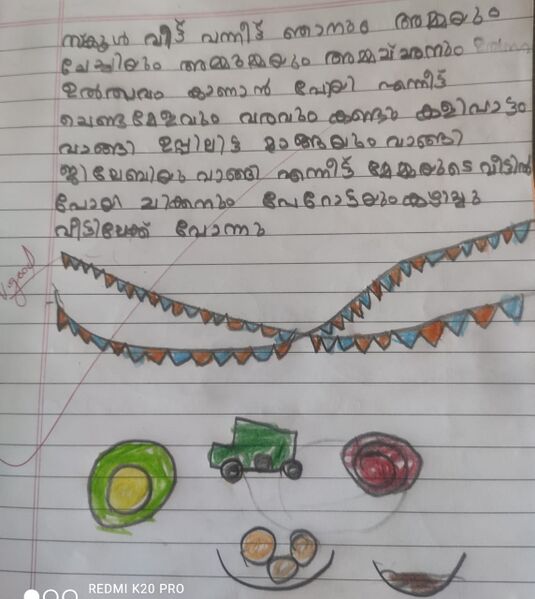 സ്കൂൾ വീട് വന്നീട്ട് ഞാനും അമ്മയും
ചേച്ചിയും അമ്മുമ്മയും അമ്മച്ഛനും
ഉൽത്സവം കാണാൻ പോയി എന്നീട്ട്
ചെണ്ടമേളവും വരവും കണ്ടും കളിപാട്ടം
വാങ്ങി ഉപ്പിലിട്ട മാങ്ങയും വാങ്ങി
ജിലേബിയു വാങ്ങി എന്നീട്ട് മേമ്മയുടെ വീട്ടിൽ
പോയി ചിക്കനും പേറോട്ടയും കഴിച്ചു
വീടിലേക്ക് പോന്നു
V.good
REDMI K20 PRO